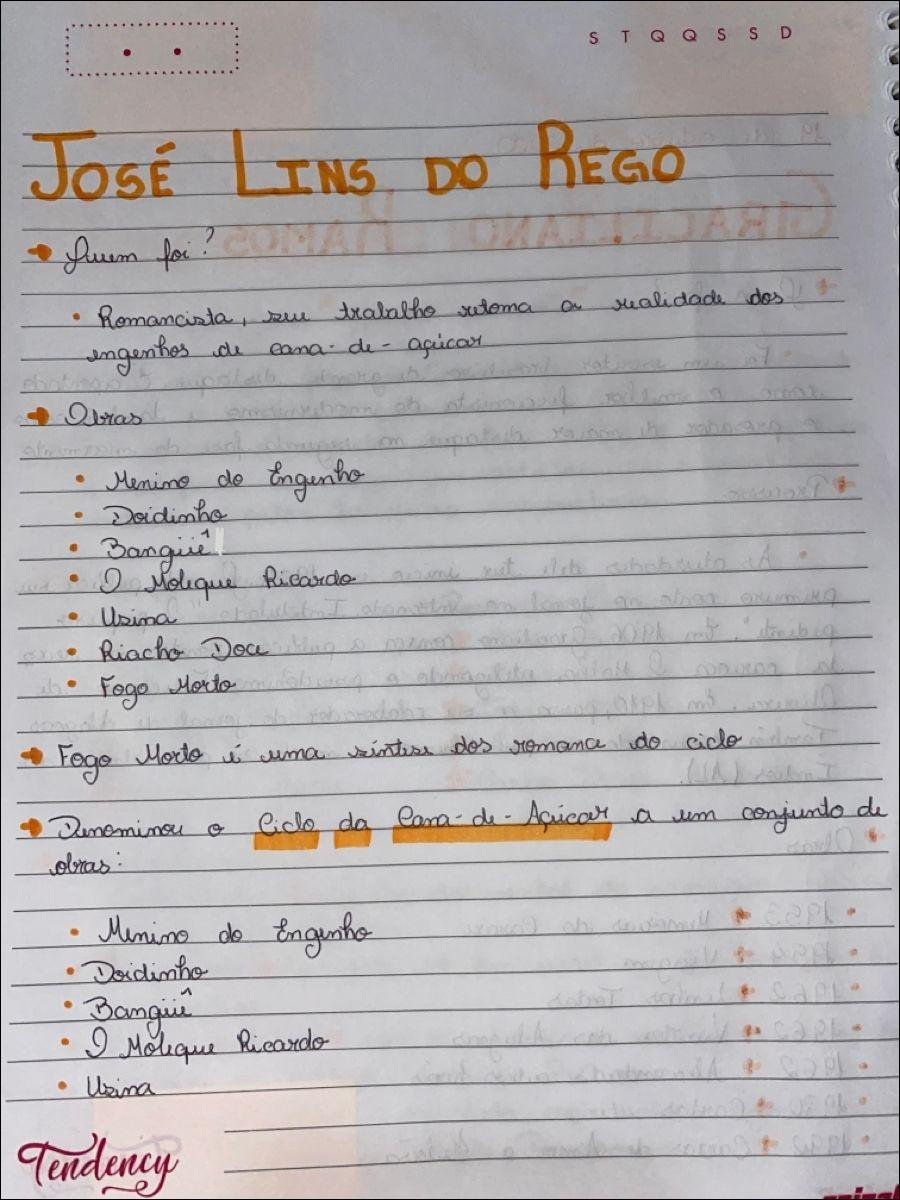 S T Q Q S S D
JOSÉ LINS DO REGO
Quem foi?
• Romancista, seu trabalho retoma a realidade dos
engenhos de cana-de-açúcar
Obras
• Menino do Engenho
• Doidinho
• Bangüê
• O Moleque Ricardo
• Usina
• Riacho Doce
• Fogo Morto
Fogo Morto é uma síntese dos romance do ciclo
Denominou o Ciclo da Cana-de-Açúcar a um conjunto de
obras:
• Menino do Engenho
• Doidinho
• Bangüê
• O Moleque Ricardo
• Usina
Tendency